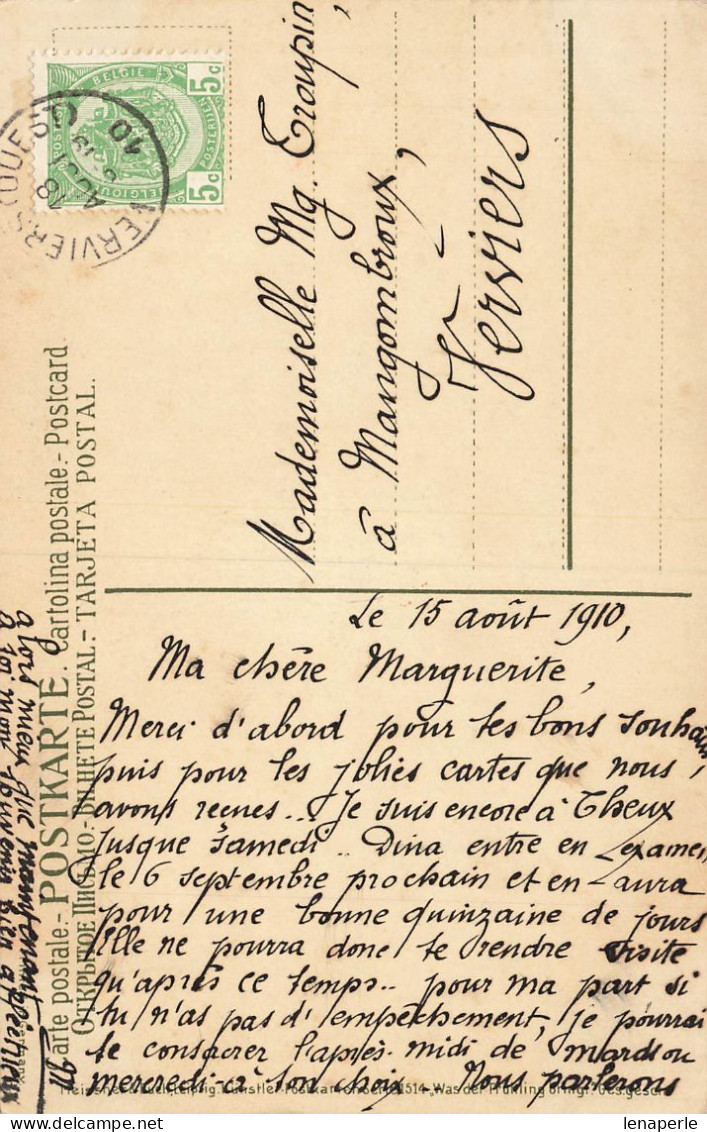 Mademoiselle Mg. Traupin,
à Mangombroux,
Verviers
BELGIE
5c 5c
POSTERIJEN
BELGIQUE
VERVIERS (OUEST)
18
AOUT
10
Carte postale.- POSTKARTE. Cartolina postale.- Postcard
ОТКРЫТОЕ ПИСЬМО.- BILHETE POSTAL.- TARJETA POSTAL.
Le 15 août 1910,
Ma chère Marguerite,
Merci d'abord pour tes bons souhaits
puis pour les jolies cartes que nous,
avons reçues... Je suis encore à Theux
jusque samedi.. Dina entre en examen
le 6 septembre prochain et en aura
pour une bonne quinzaine de jours
Elle ne pourra donc te rendre visite
qu'après ce temps.. pour ma part si
tu n'as pas d'empêchement, je pourrai
te consacrer l'après-midi de mardi ou
mercredi - à ton choix - Nous parlerons
alors mieux que maintenant
à toi mon souvenir bien affectueux
Meissner & Buch, Leipzig. Künstler-Postkarten Serie 1514. „Was der Frühling bringt" Ges. gesch.
lenaperle